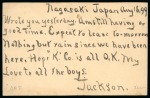 Nagasaki Japan. Aug 16, 99
Wrote you yesterday. Am still having a
good time. Expect to leave to-morrow
Nothing but rain since we have been
here. Hope K. Co. is all O.K. My
love to all the boys.
Jackson.